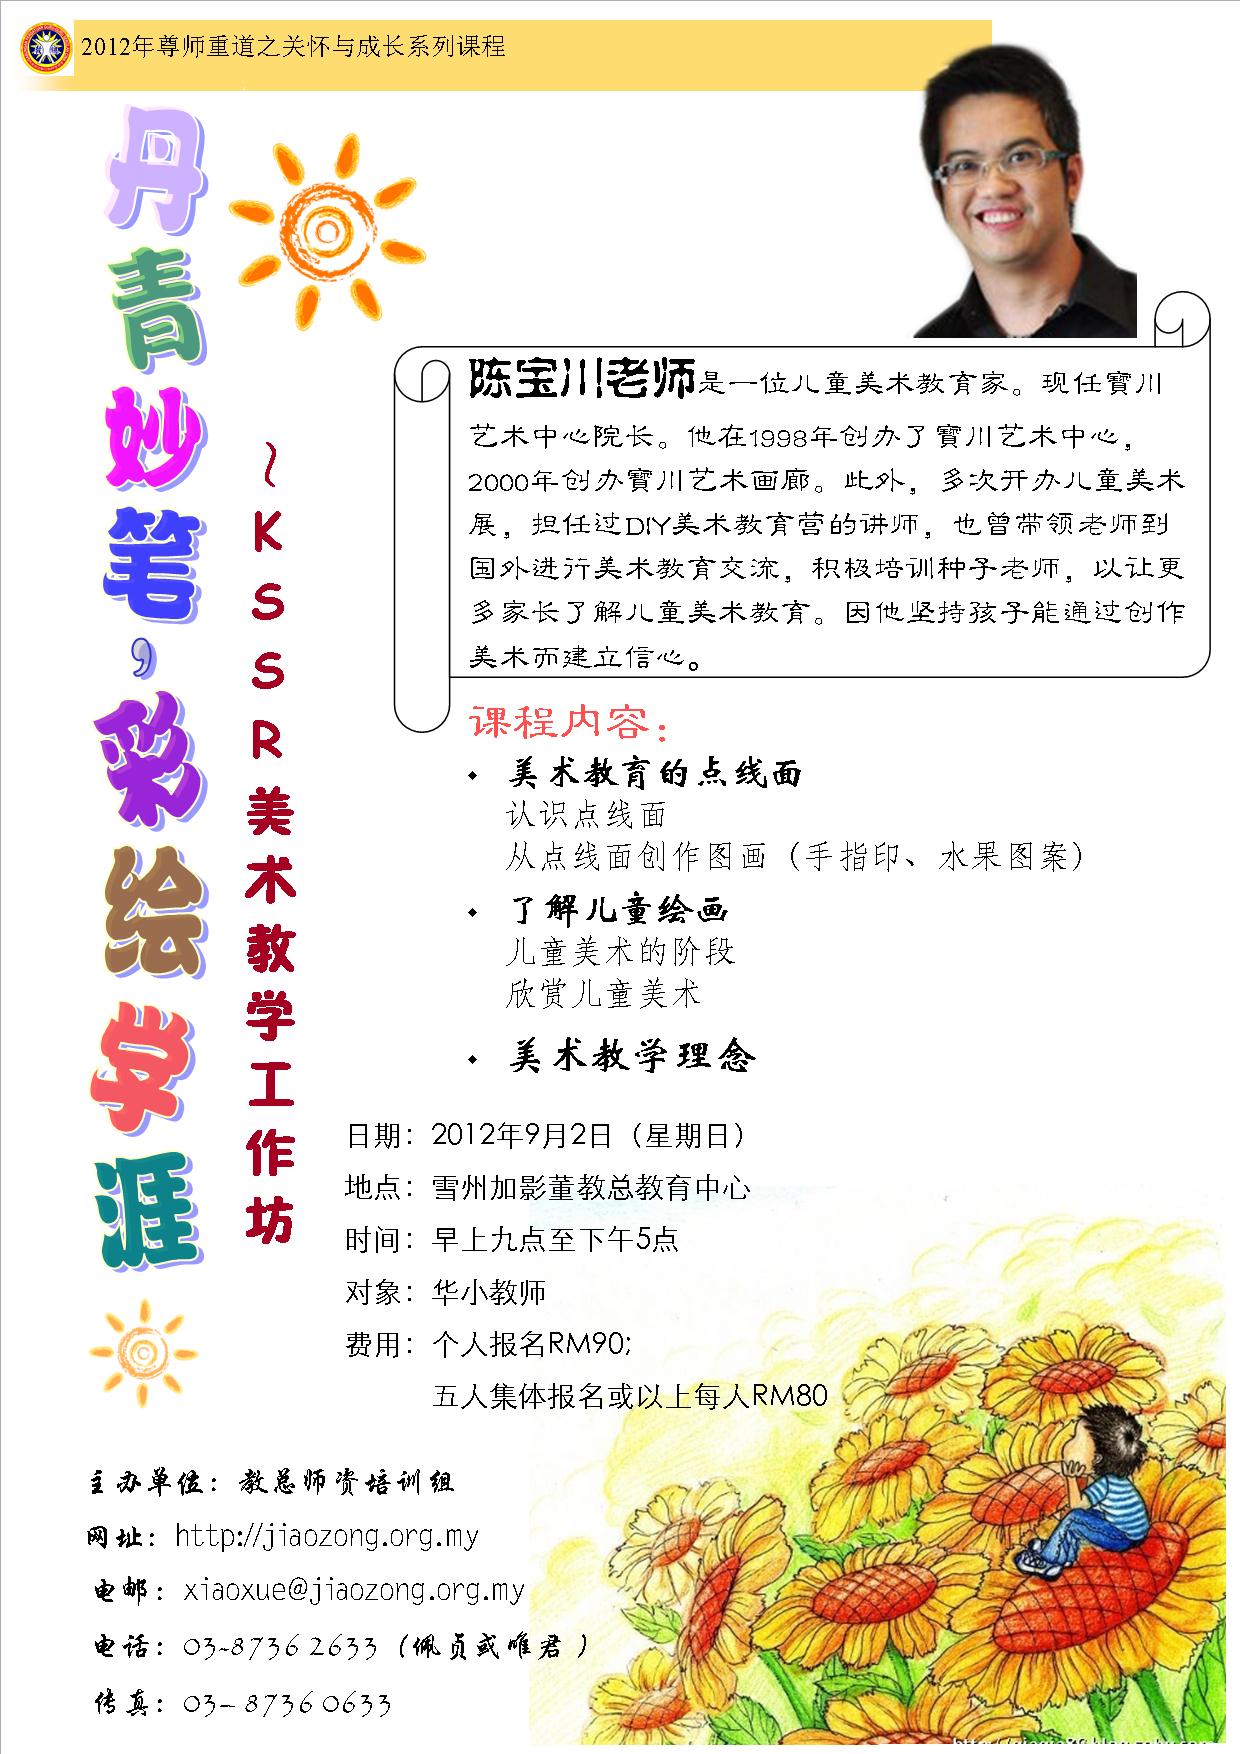 2012年尊师重道之关怀与成长系列课程
丹青妙笔，彩绘学涯
～KSSR美术教学工作坊
陈宝川老师是一位儿童美术教育家。现任寳川
艺术中心院长。他在1998年创办了寳川艺术中心，
2000年创办寳川艺术画廊。此外，多次开办儿童美术
展，担任过DIY美术教育营的讲师，也曾带领老师到
国外进行美术教育交流，积极培训种子老师，以让更
多家长了解儿童美术教育。因他坚持孩子能通过创作
美术而建立信心。
课程内容：
美术教育的点线面
认识点线面
从点线面创作图画（手指印、水果图案）
了解儿童绘画
儿童美术的阶段
欣赏儿童美术
美术教学理念
日期：2012年9月2日（星期日）
地点：雪州加影董教总教育中心
时间：早上九点至下午5点
对象：华小教师
费用：个人报名RM90;
五人集体报名或以上每人RM80
主办单位：教总师资培训组
网址：http://jiaozong.org.my
电邮：xiaoxue@jiaozong.org.my
电话：03-8736 2633（佩贞或唯君）
传真：03-8736 0633